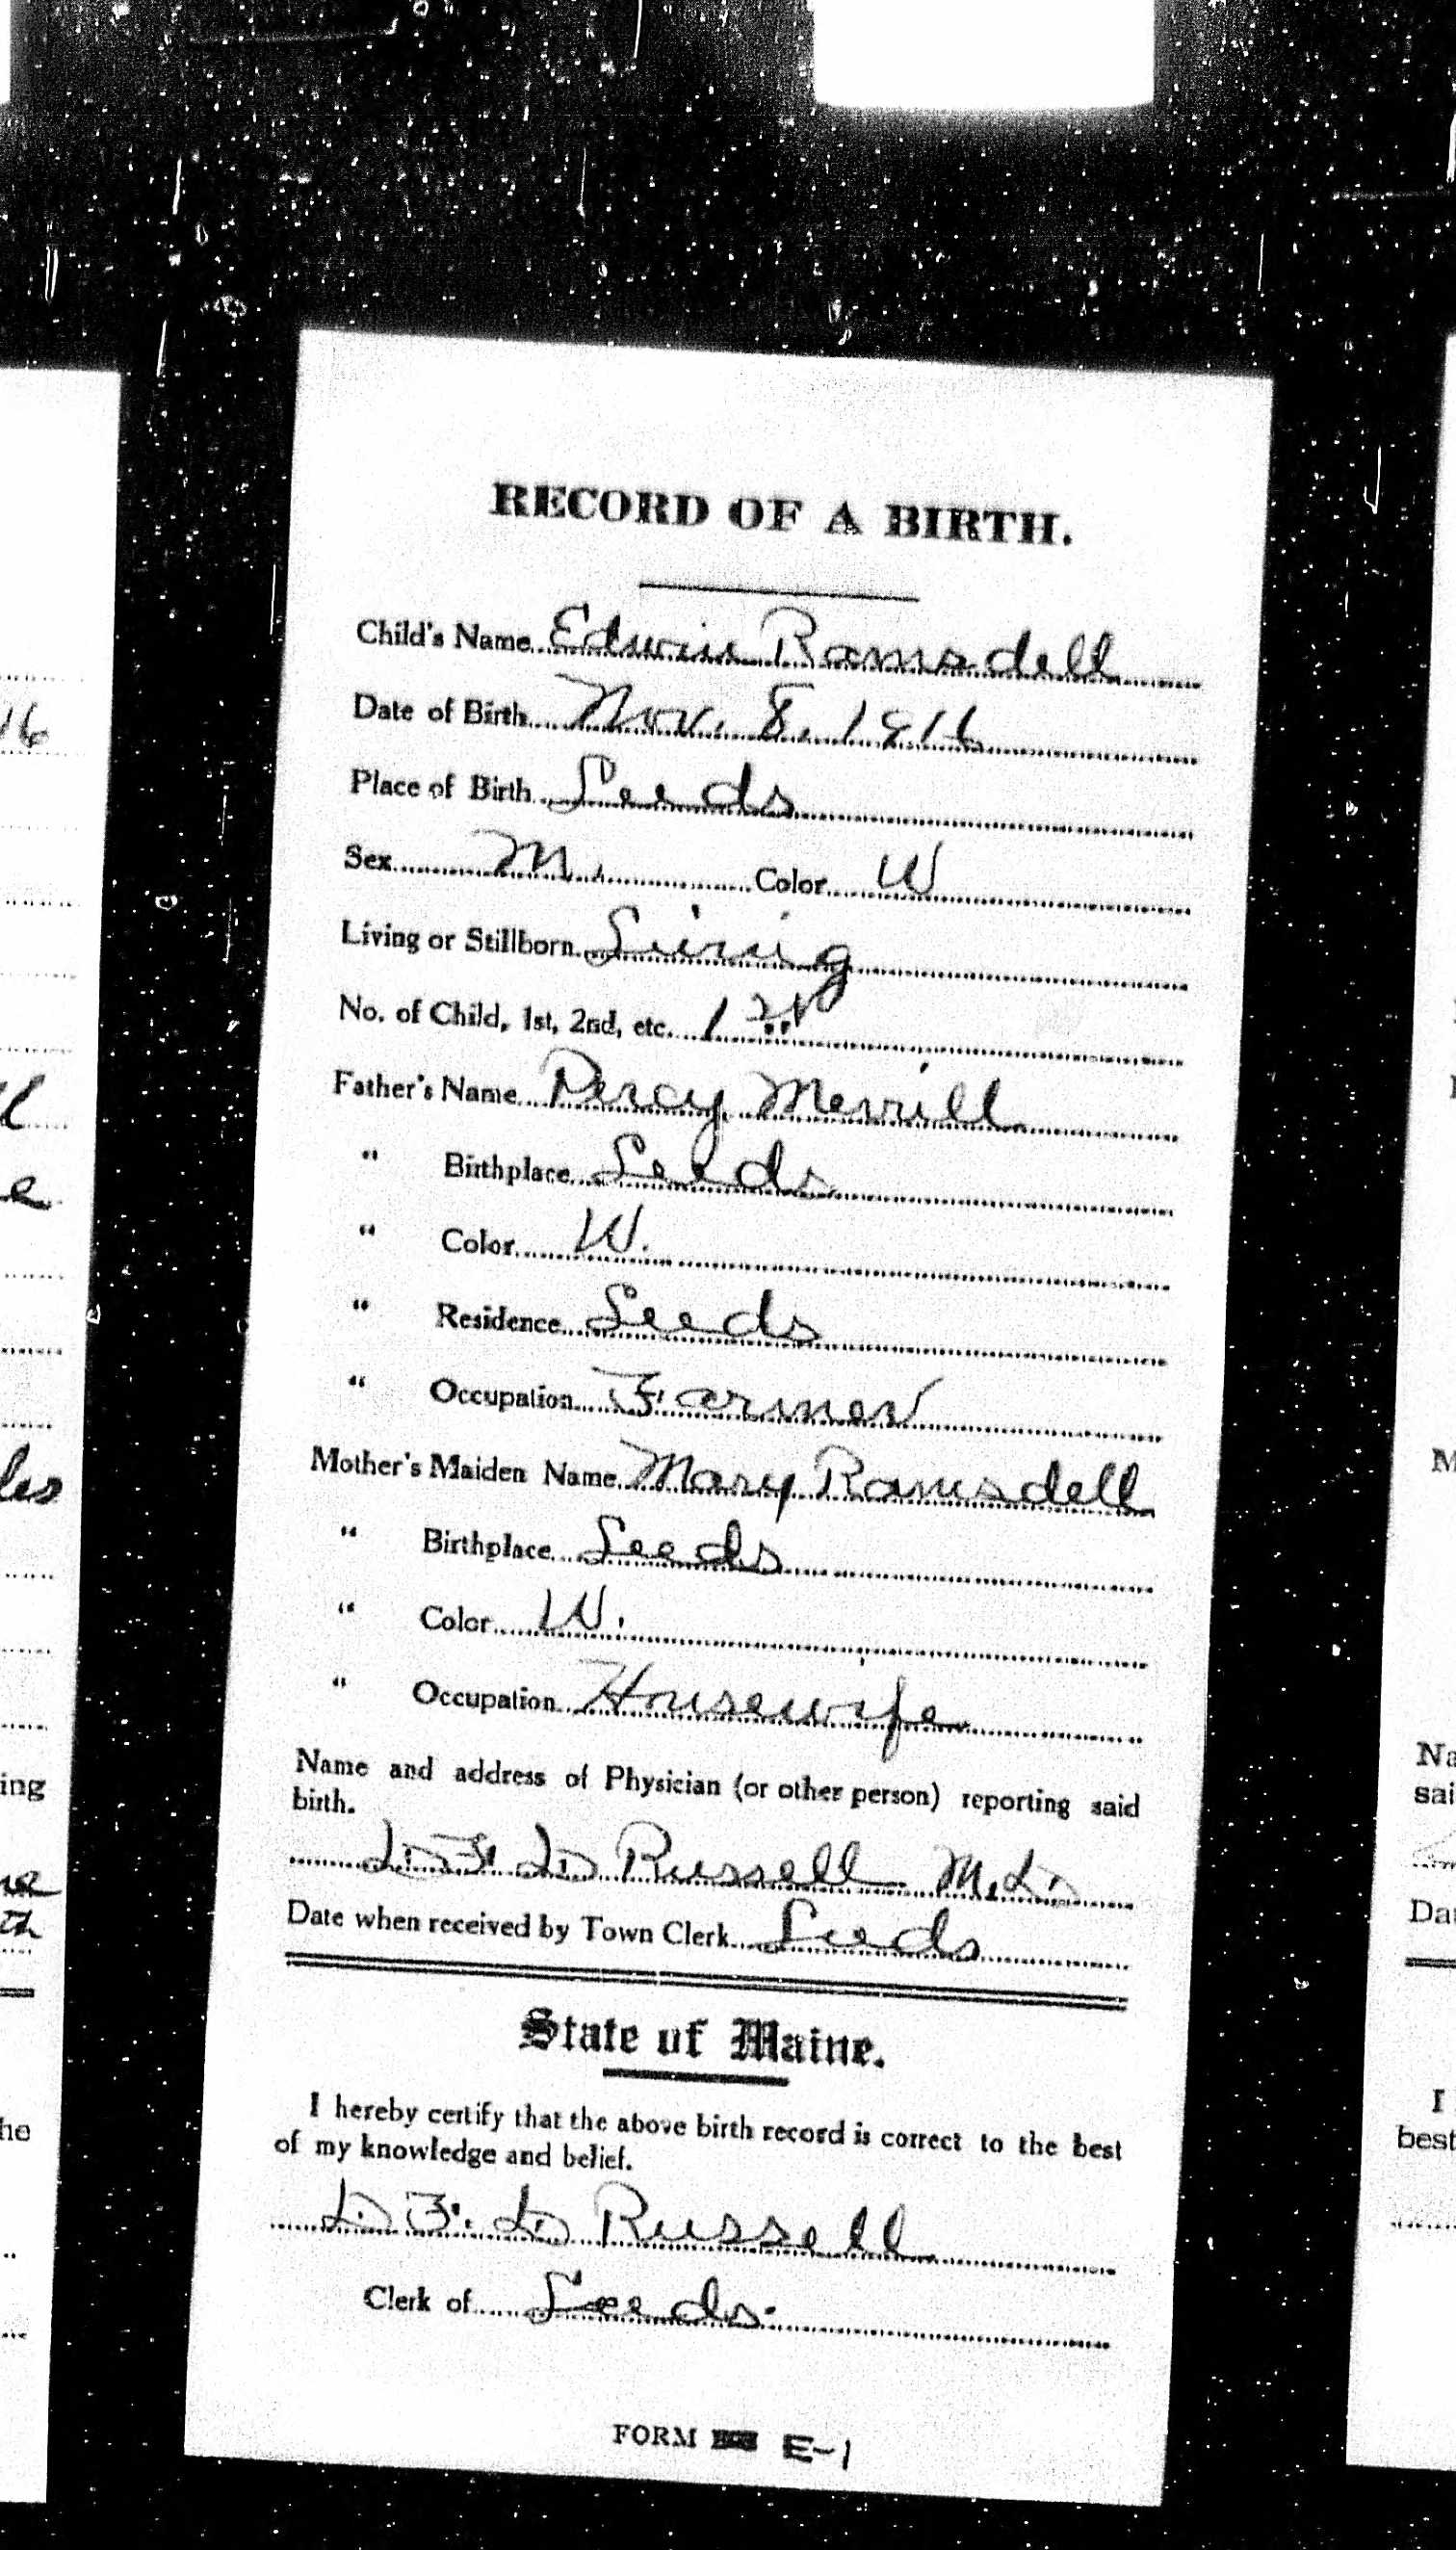 RECORD OF A BIRTH.
Child's Name Edwin Ramsdell
Date of Birth Nov. 8, 1916
Place of Birth Leeds
Sex M. Color W
Living or Stillborn Living
No. of Child, 1st, 2nd, etc. 1st
Father's Name Percy Merrill
" Birthplace Leeds
" Color W.
" Residence Leeds
" Occupation Farmer
Mother's Maiden Name Mary Ramsdell
" Birthplace Leeds
" Color W.
" Occupation Housewife
Name and address of Physician (or other person) reporting said
birth.
Russell M.D.
Date when received by Town Clerk Leeds
State of Maine.
I hereby certify that the above birth record is correct to the best
of my knowledge and belief.
Russell
Clerk of Leeds.
FORM E-1
16
e
les
ing
he
Na
sai
Da
I
best
M